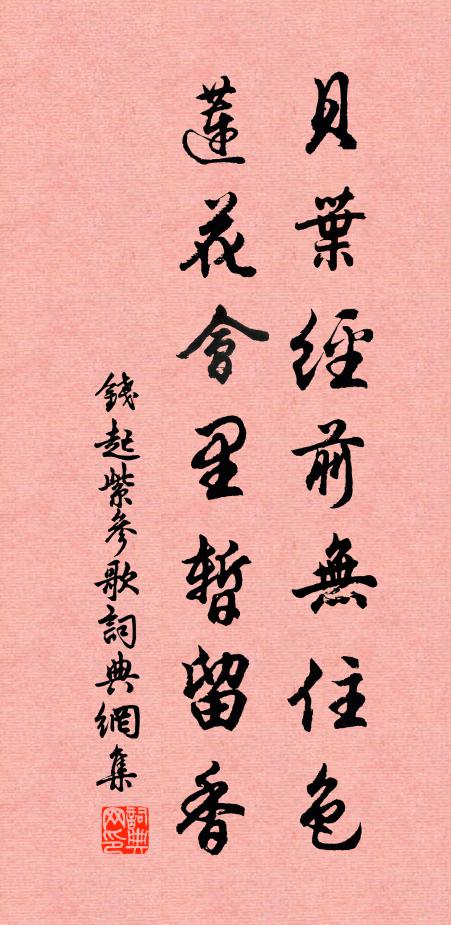 貝葉經前無住色
蓮花會里暫留香
錢起紫參歌詞典網集
詞典网印